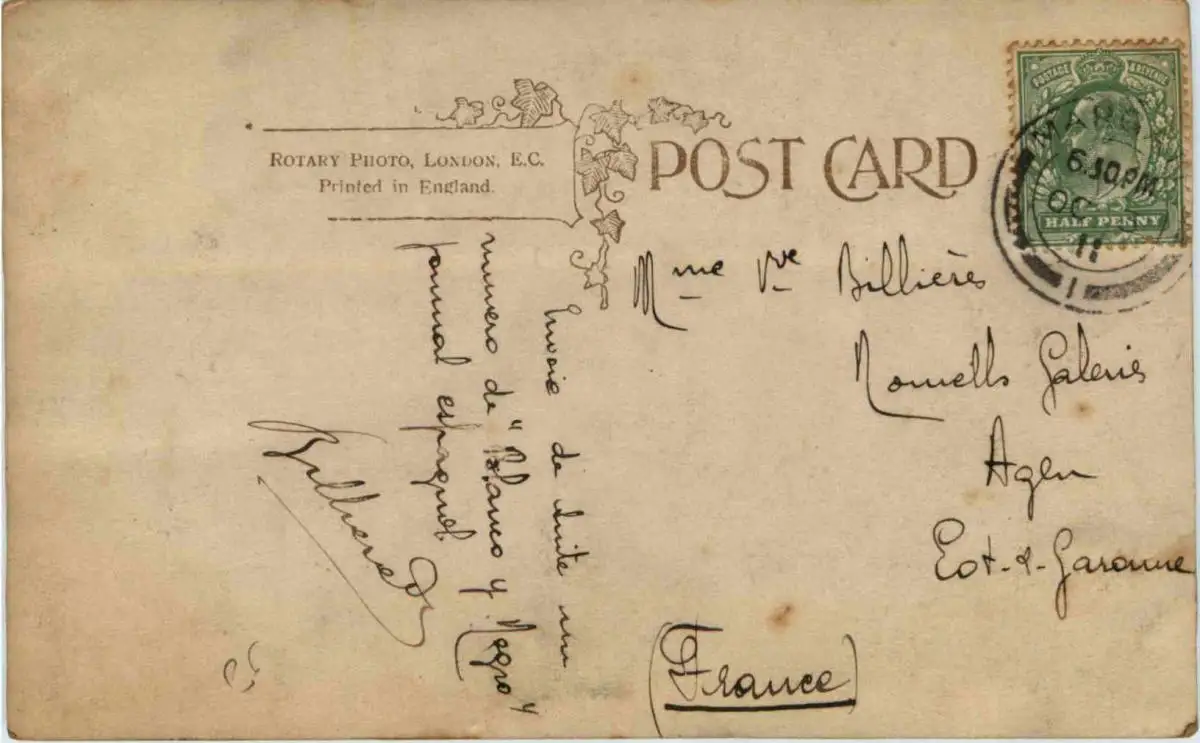 ROTARY PHOTO, LONDON, E.C.
Printed in England.
POST CARD
POSTAGE & REVENUE
HALF PENNY
6.30PM
OC
11
1
Mme Vve Billières
Nouvelles Galeries
Agen
Lot-&-Garonne
(France)
Envoie de suite un
numero de "Blanco y Negro"
journal espagnol